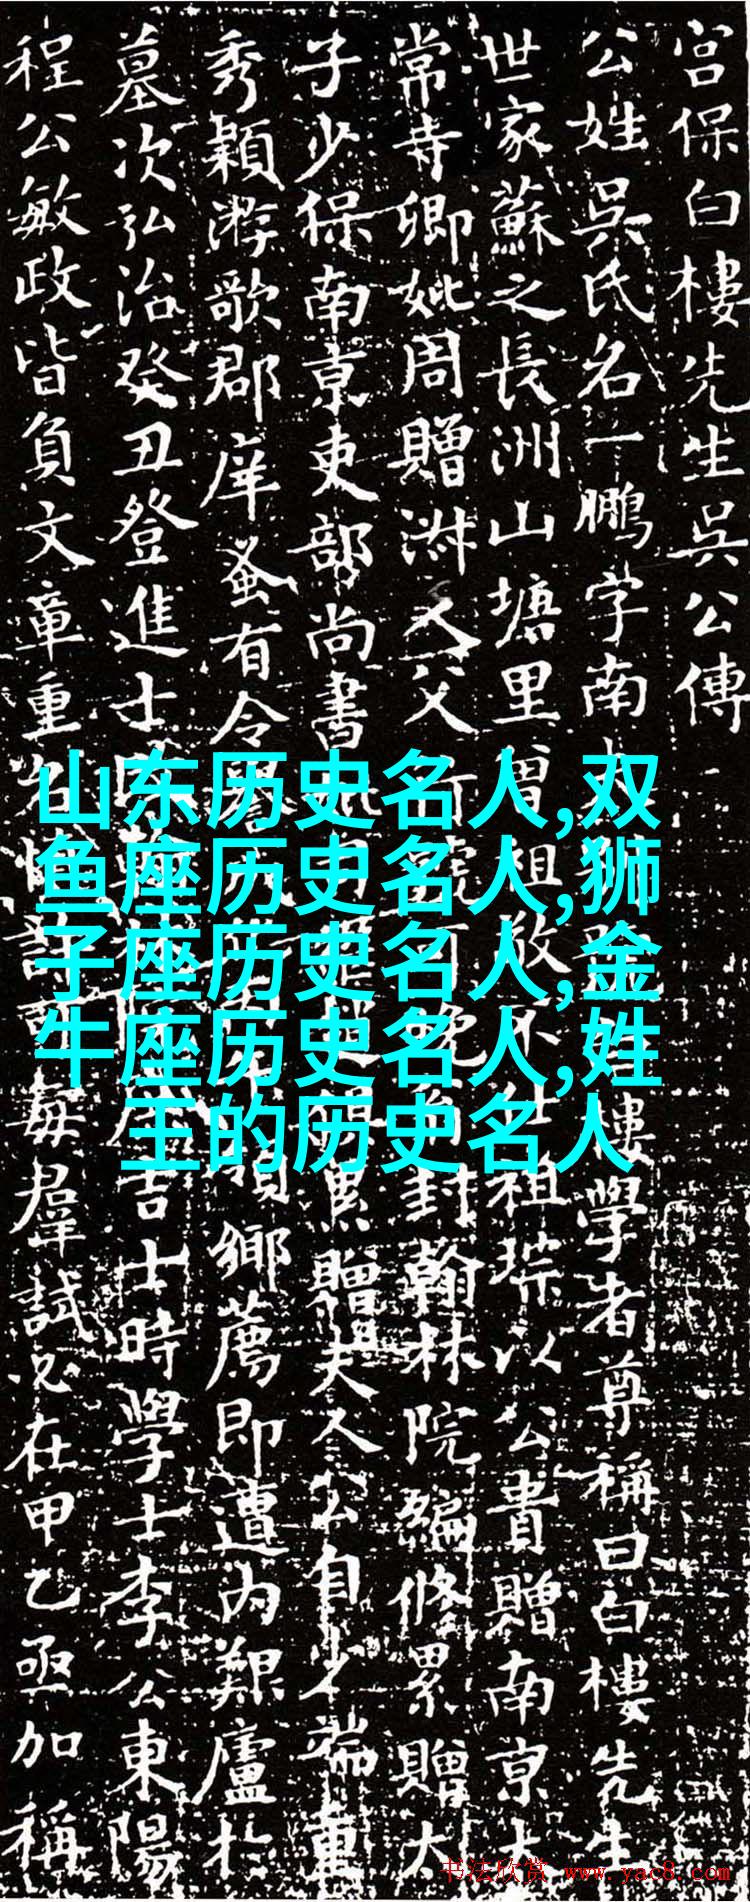 宫保白樓先生吳公傳
公姓吳氏名一鵬字南
樓學者尊稱曰白樓先生
世家蘇之長洲山塘里曾祖
祖琮以公貴贈南京
常寺卿妣周贈淑人父
封翰林院編修累贈太
子少保南京吏部尚書
累贈夫人公自少端重
秀穎游歌郡庠蚤有令譽
鄉薦即遭内艱廬於
墓次弘治癸丑登進士
吉士時學士李公東陽
程公敏政皆負文章重名
每羣試必在甲乙亟加稱
山东历史名人,双
鱼座历史名人,狮
子座历史名人,金
牛座历史名人,姓
王的历史名人
书法欣赏 www.yac8.com